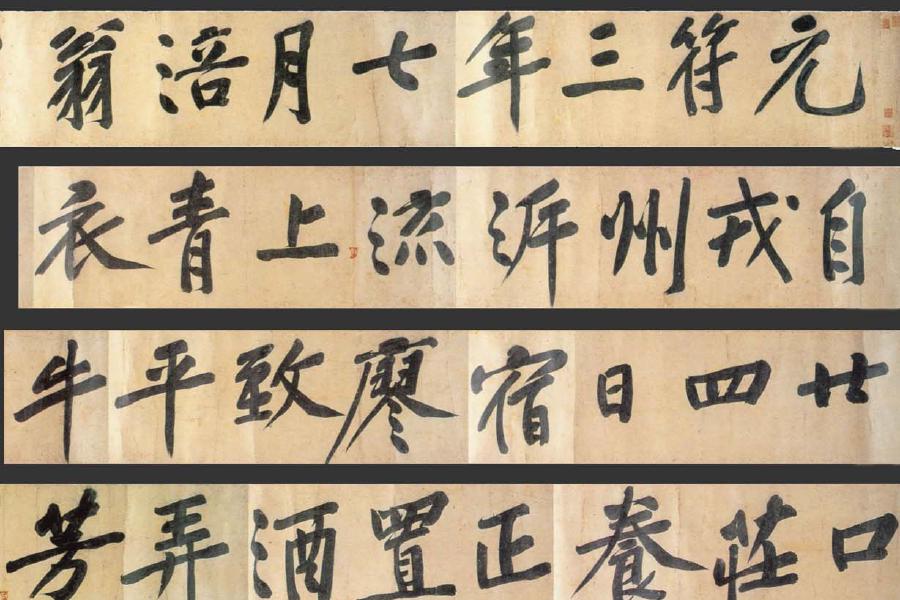 元符三年七月涪翁
自戎州泝流上青衣
廿四日宿廖致平牛
口莊養正置酒弄芳